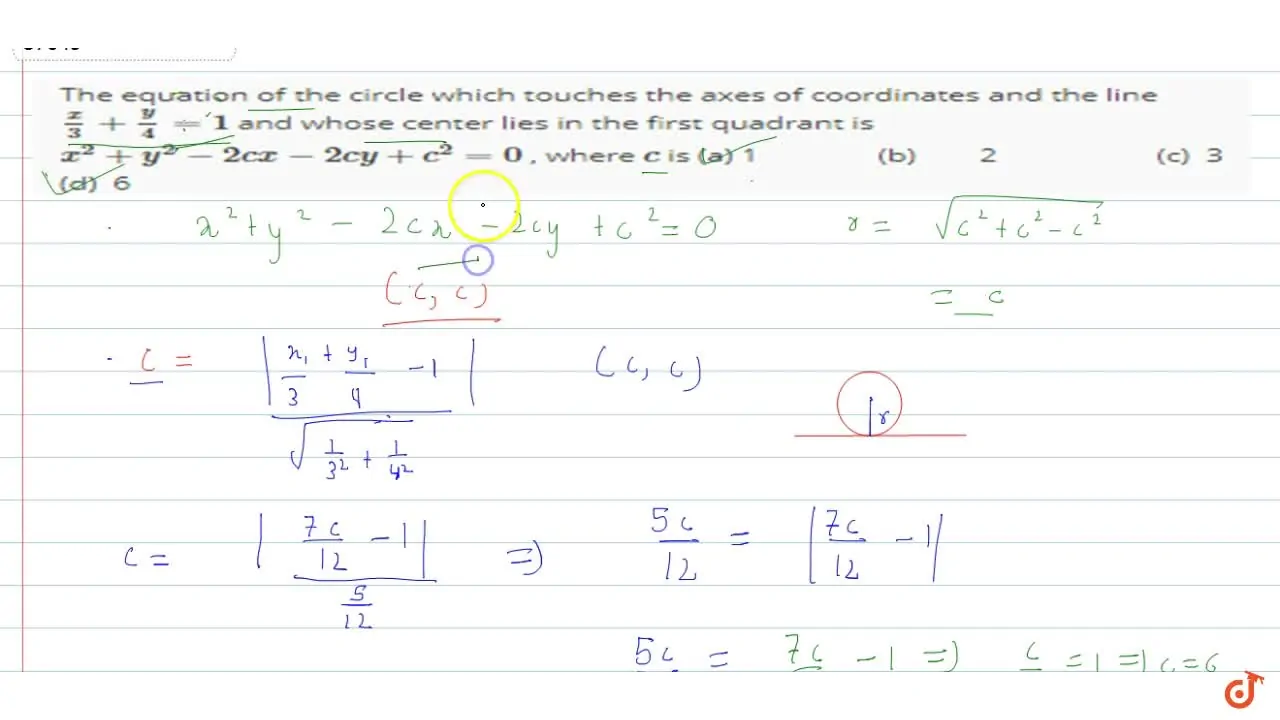 The equation of the circle which touches the axes of coordinates and the line
x/3 + y/4 = 1 and whose center lies in the first quadrant is
x² + y² − 2cx − 2cy + c² = 0 , where c is (a) 1 (b) 2 (c) 3
(d) 6
x² + y² − 2cx − 2cy + c² = 0 r = √(c² + c² − c²)
(c, c) = c
c = |x₁/3 + y₁/4 − 1| / √(1/3² + 1/4²) (c, c)
r
c = |7c/12 − 1| / (5/12) ⇒ 5c/12 = |7c/12 − 1|
5c = 7c − 1 ⇒ c = 1 ⇒ c = 6